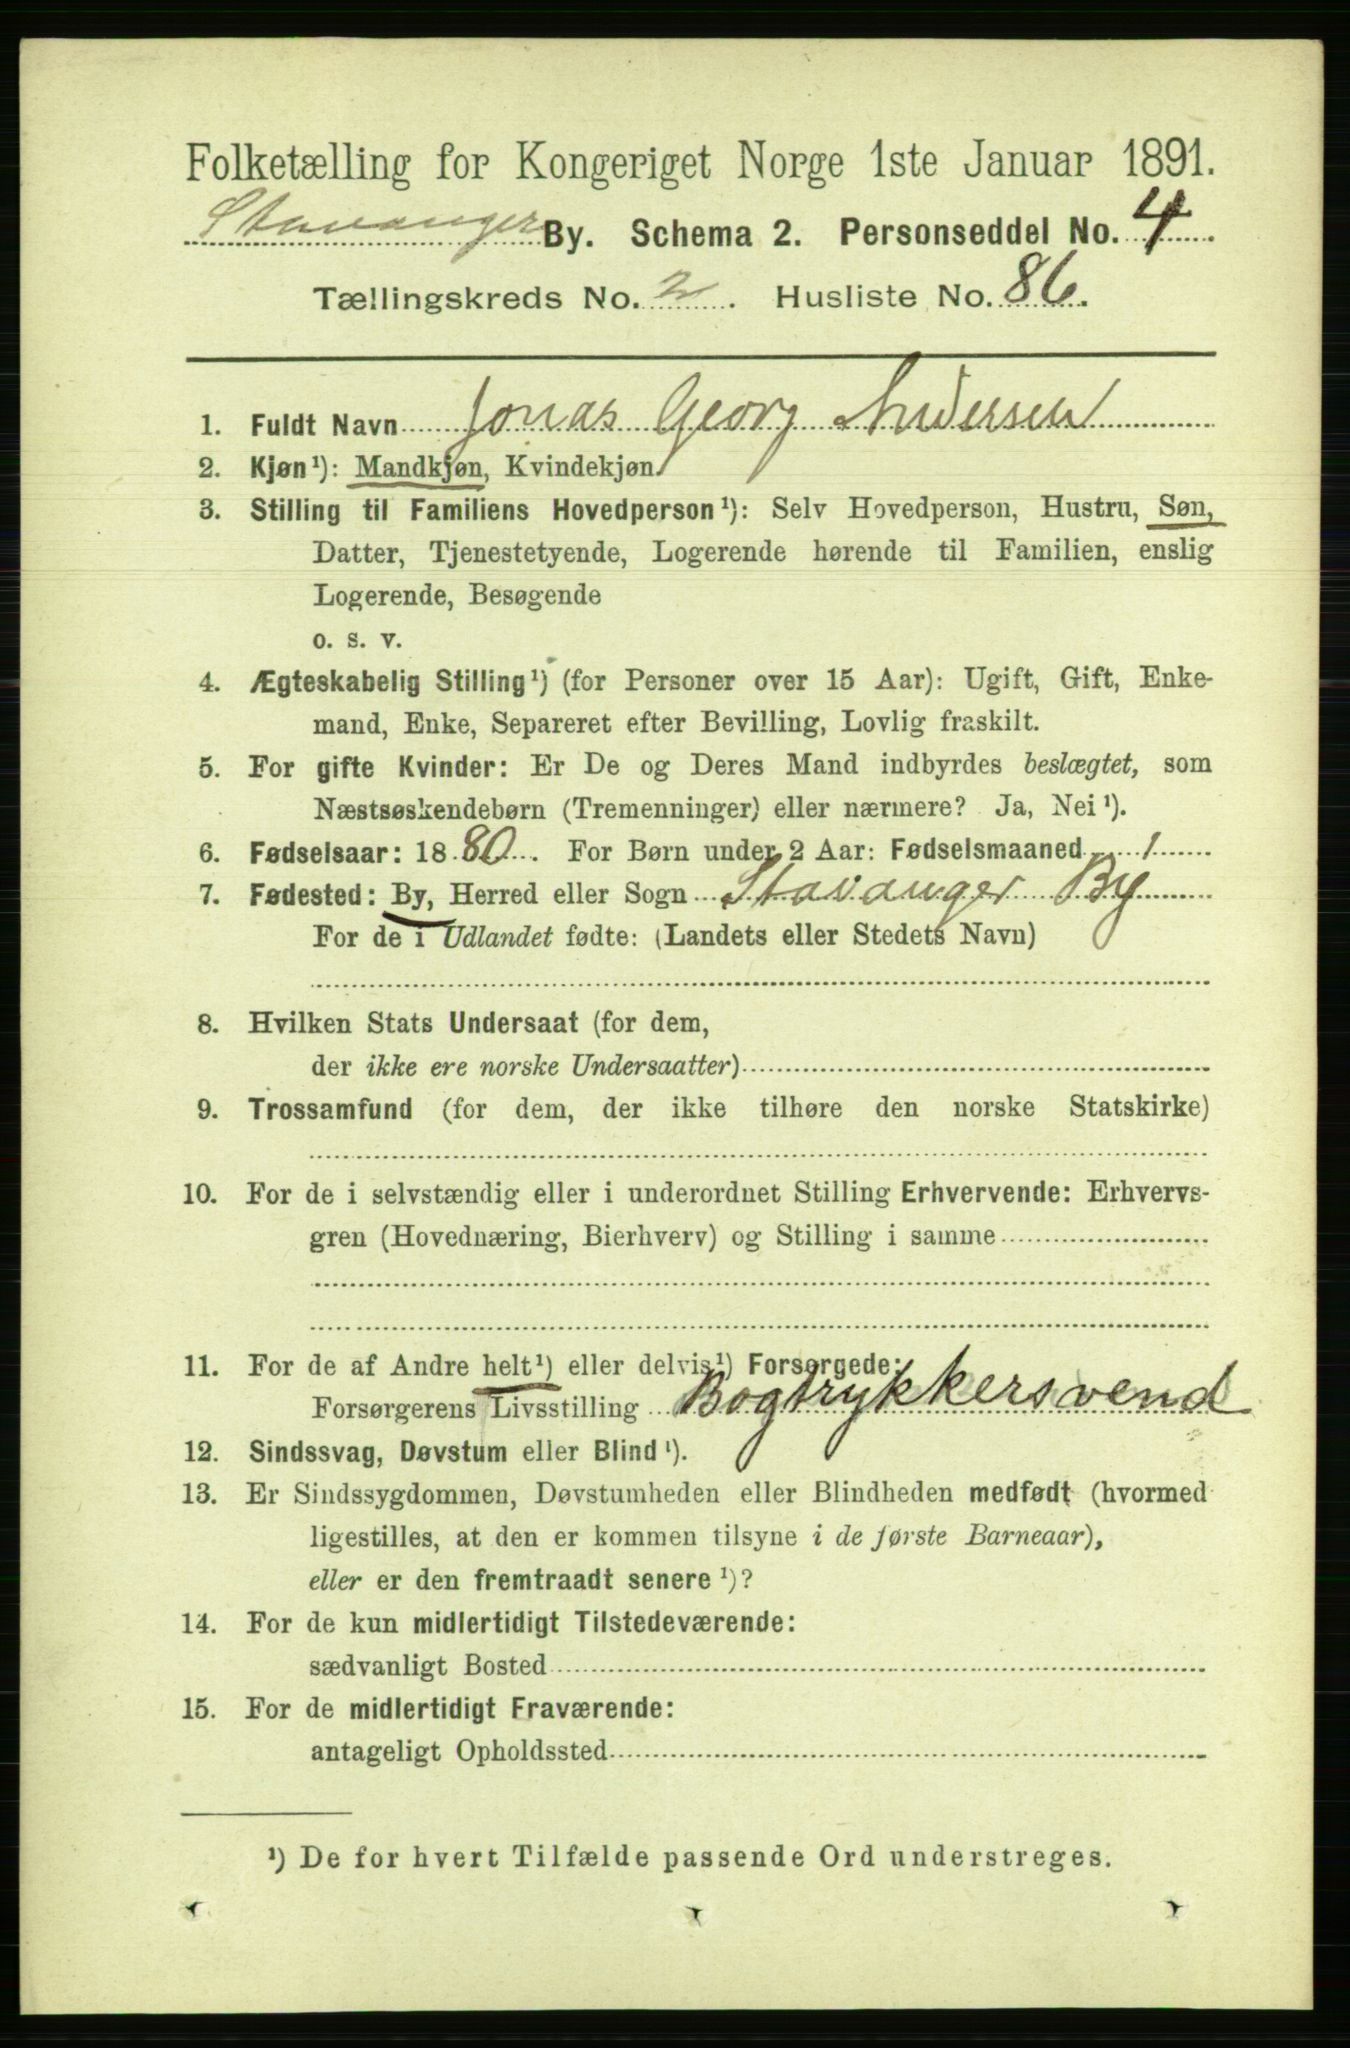 Folketælling for Kongeriget Norge 1ste Januar 1891.
Stavanger By. Schema 2. Personseddel No. 4
Tællingskreds No. 2. Husliste No. 86.
1. Fuldt Navn Jonas Georg Andersen
2. Kjøn¹): Mandkjøn, Kvindekjøn.
3. Stilling til Familiens Hovedperson¹): Selv Hovedperson, Hustru, Søn,
Datter, Tjenestetyende, Logerende hørende til Familien, enslig
Logerende, Besøgende
o. s. v.
4. Ægteskabelig Stilling¹) (for Personer over 15 Aar): Ugift, Gift, Enke-
mand, Enke, Separeret efter Bevilling, Lovlig fraskilt.
5. For gifte Kvinder: Er De og Deres Mand indbyrdes beslægtet, som
Næstsøskendebørn (Tremenninger) eller nærmere? Ja, Nei¹).
6. Fødselsaar: 1880. For Børn under 2 Aar: Fødselsmaaned 1
7. Fødested: By, Herred eller Sogn Stavanger By
For de i Udlandet fødte: (Landets eller Stedets Navn)
8. Hvilken Stats Undersaat (for dem,
der ikke ere norske Undersaatter)
9. Trossamfund (for dem, der ikke tilhøre den norske Statskirke)
10. For de i selvstændig eller i underordnet Stilling Erhvervende: Erhvervs-
gren (Hovednæring, Bierhverv) og Stilling i samme
11. For de af Andre helt¹) eller delvis¹) Forsørgede:
Forsørgerens Livsstilling Bogtrykkersvend
12. Sindssvag, Døvstum eller Blind¹).
13. Er Sindssygdommen, Døvstumheden eller Blindheden medfødt (hvormed
ligestilles, at den er kommen tilsyne i de første Barneaar),
eller er den fremtraadt senere¹)?
14. For de kun midlertidigt Tilstedeværende:
sædvanligt Bosted
15. For de midlertidigt Fraværende:
antageligt Opholdssted
¹) De for hvert Tilfælde passende Ord understreges.